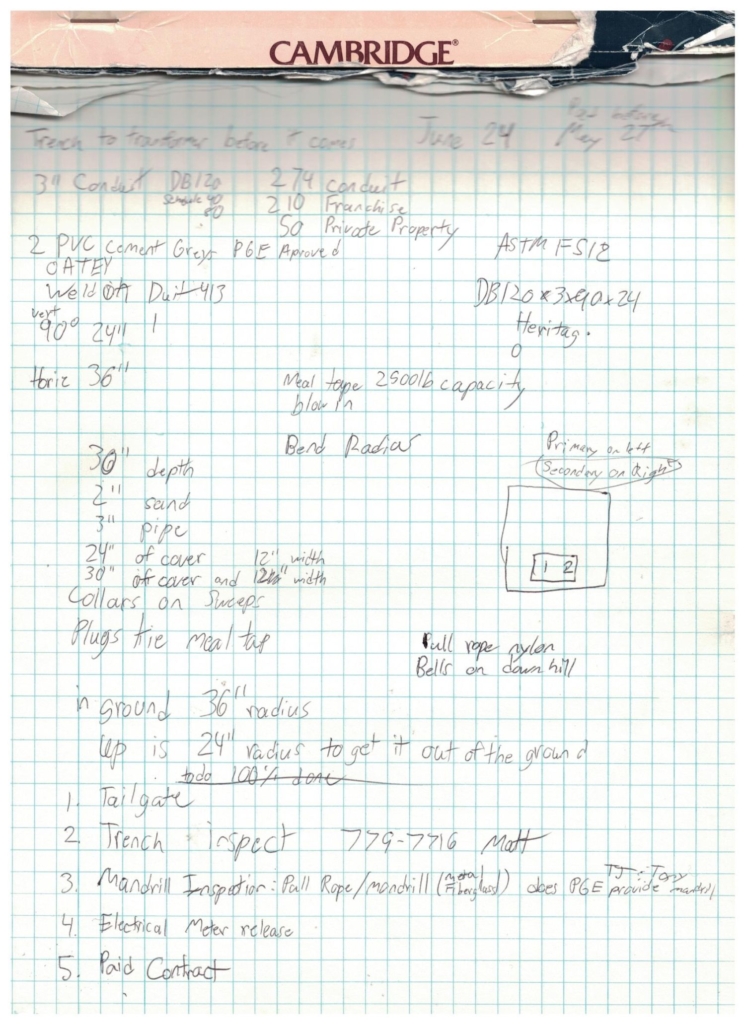 CAMBRIDGE®
Paid before
Trench to transformer before comes June 24 May 27
3" Conduit DB120 274 conduit
Schedule 40 210 Franchise
80
50 Private Property
2 PVC Cement Grey- PGE Aproved ASTM F512
OATEY
Weld On Duit 413 DB120x3x90x24
vert
90° 24" 1 Heritag.
0
Horiz 36" Meal tape 2500lb capacity
blow in
Bend Radius
Primary on left
Secondary on Right
30" depth
2" sand
3" pipe
24" of cover 12" width
30" of cover and width
1 2
Collars on Sweeps
Plugs tie meal tap
Pull rope nylon
Bells on down hill
in ground 36" radius
Up is 24" radius to get it out of the ground
todo 100% done
1. Tailgate
2. Trench inspect 779-7716 Matt
3. Mandrill Inspection: Pull Rope/mandrill (metal Fiberglass) does PGE provide mandrill
TJ - Tony
4. Electrical Meter release
5. Paid Contract